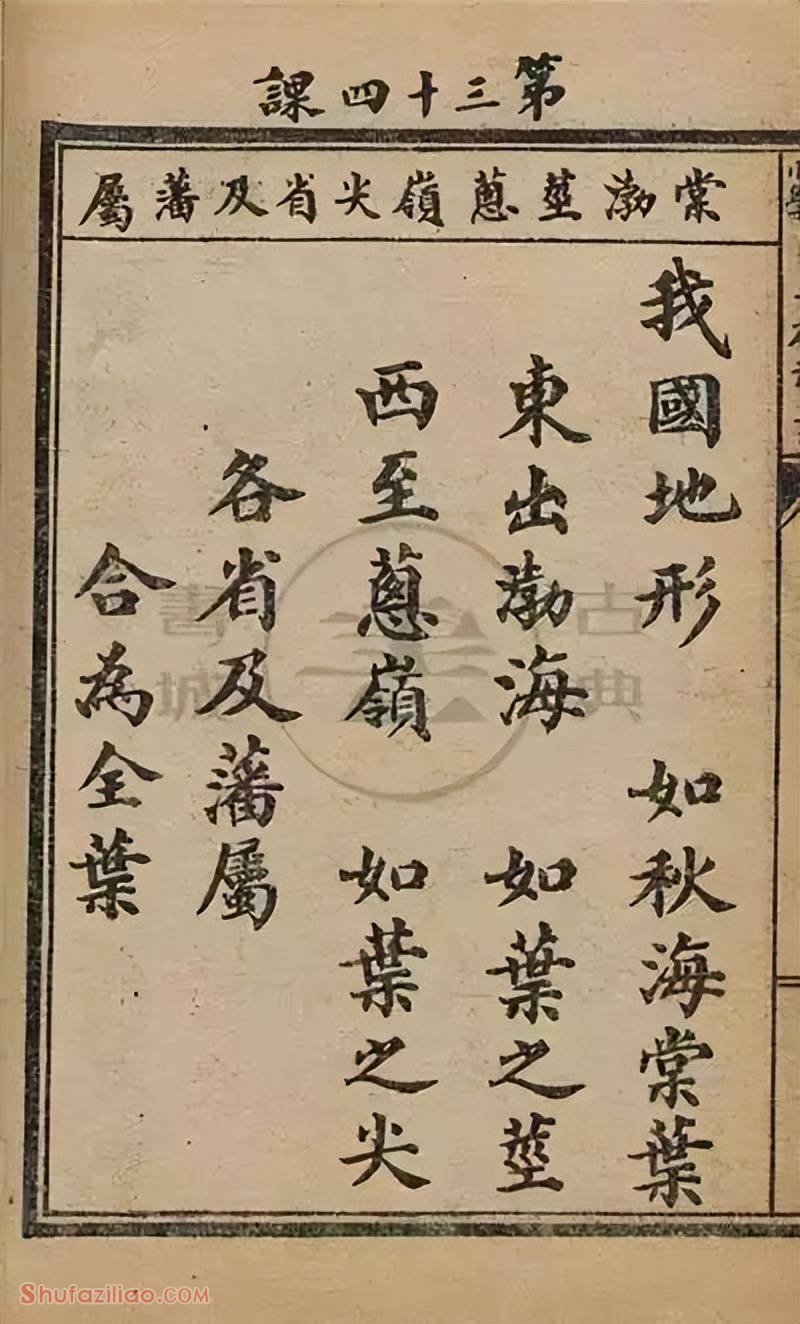 第三十四課
棠渤莖蔥嶺尖省及藩屬
我國地形 如秋海棠葉
東出渤海 如葉之莖
西至蔥嶺 如葉之尖
各省及藩屬
合為全葉
古典書城
Shufaziliao.com